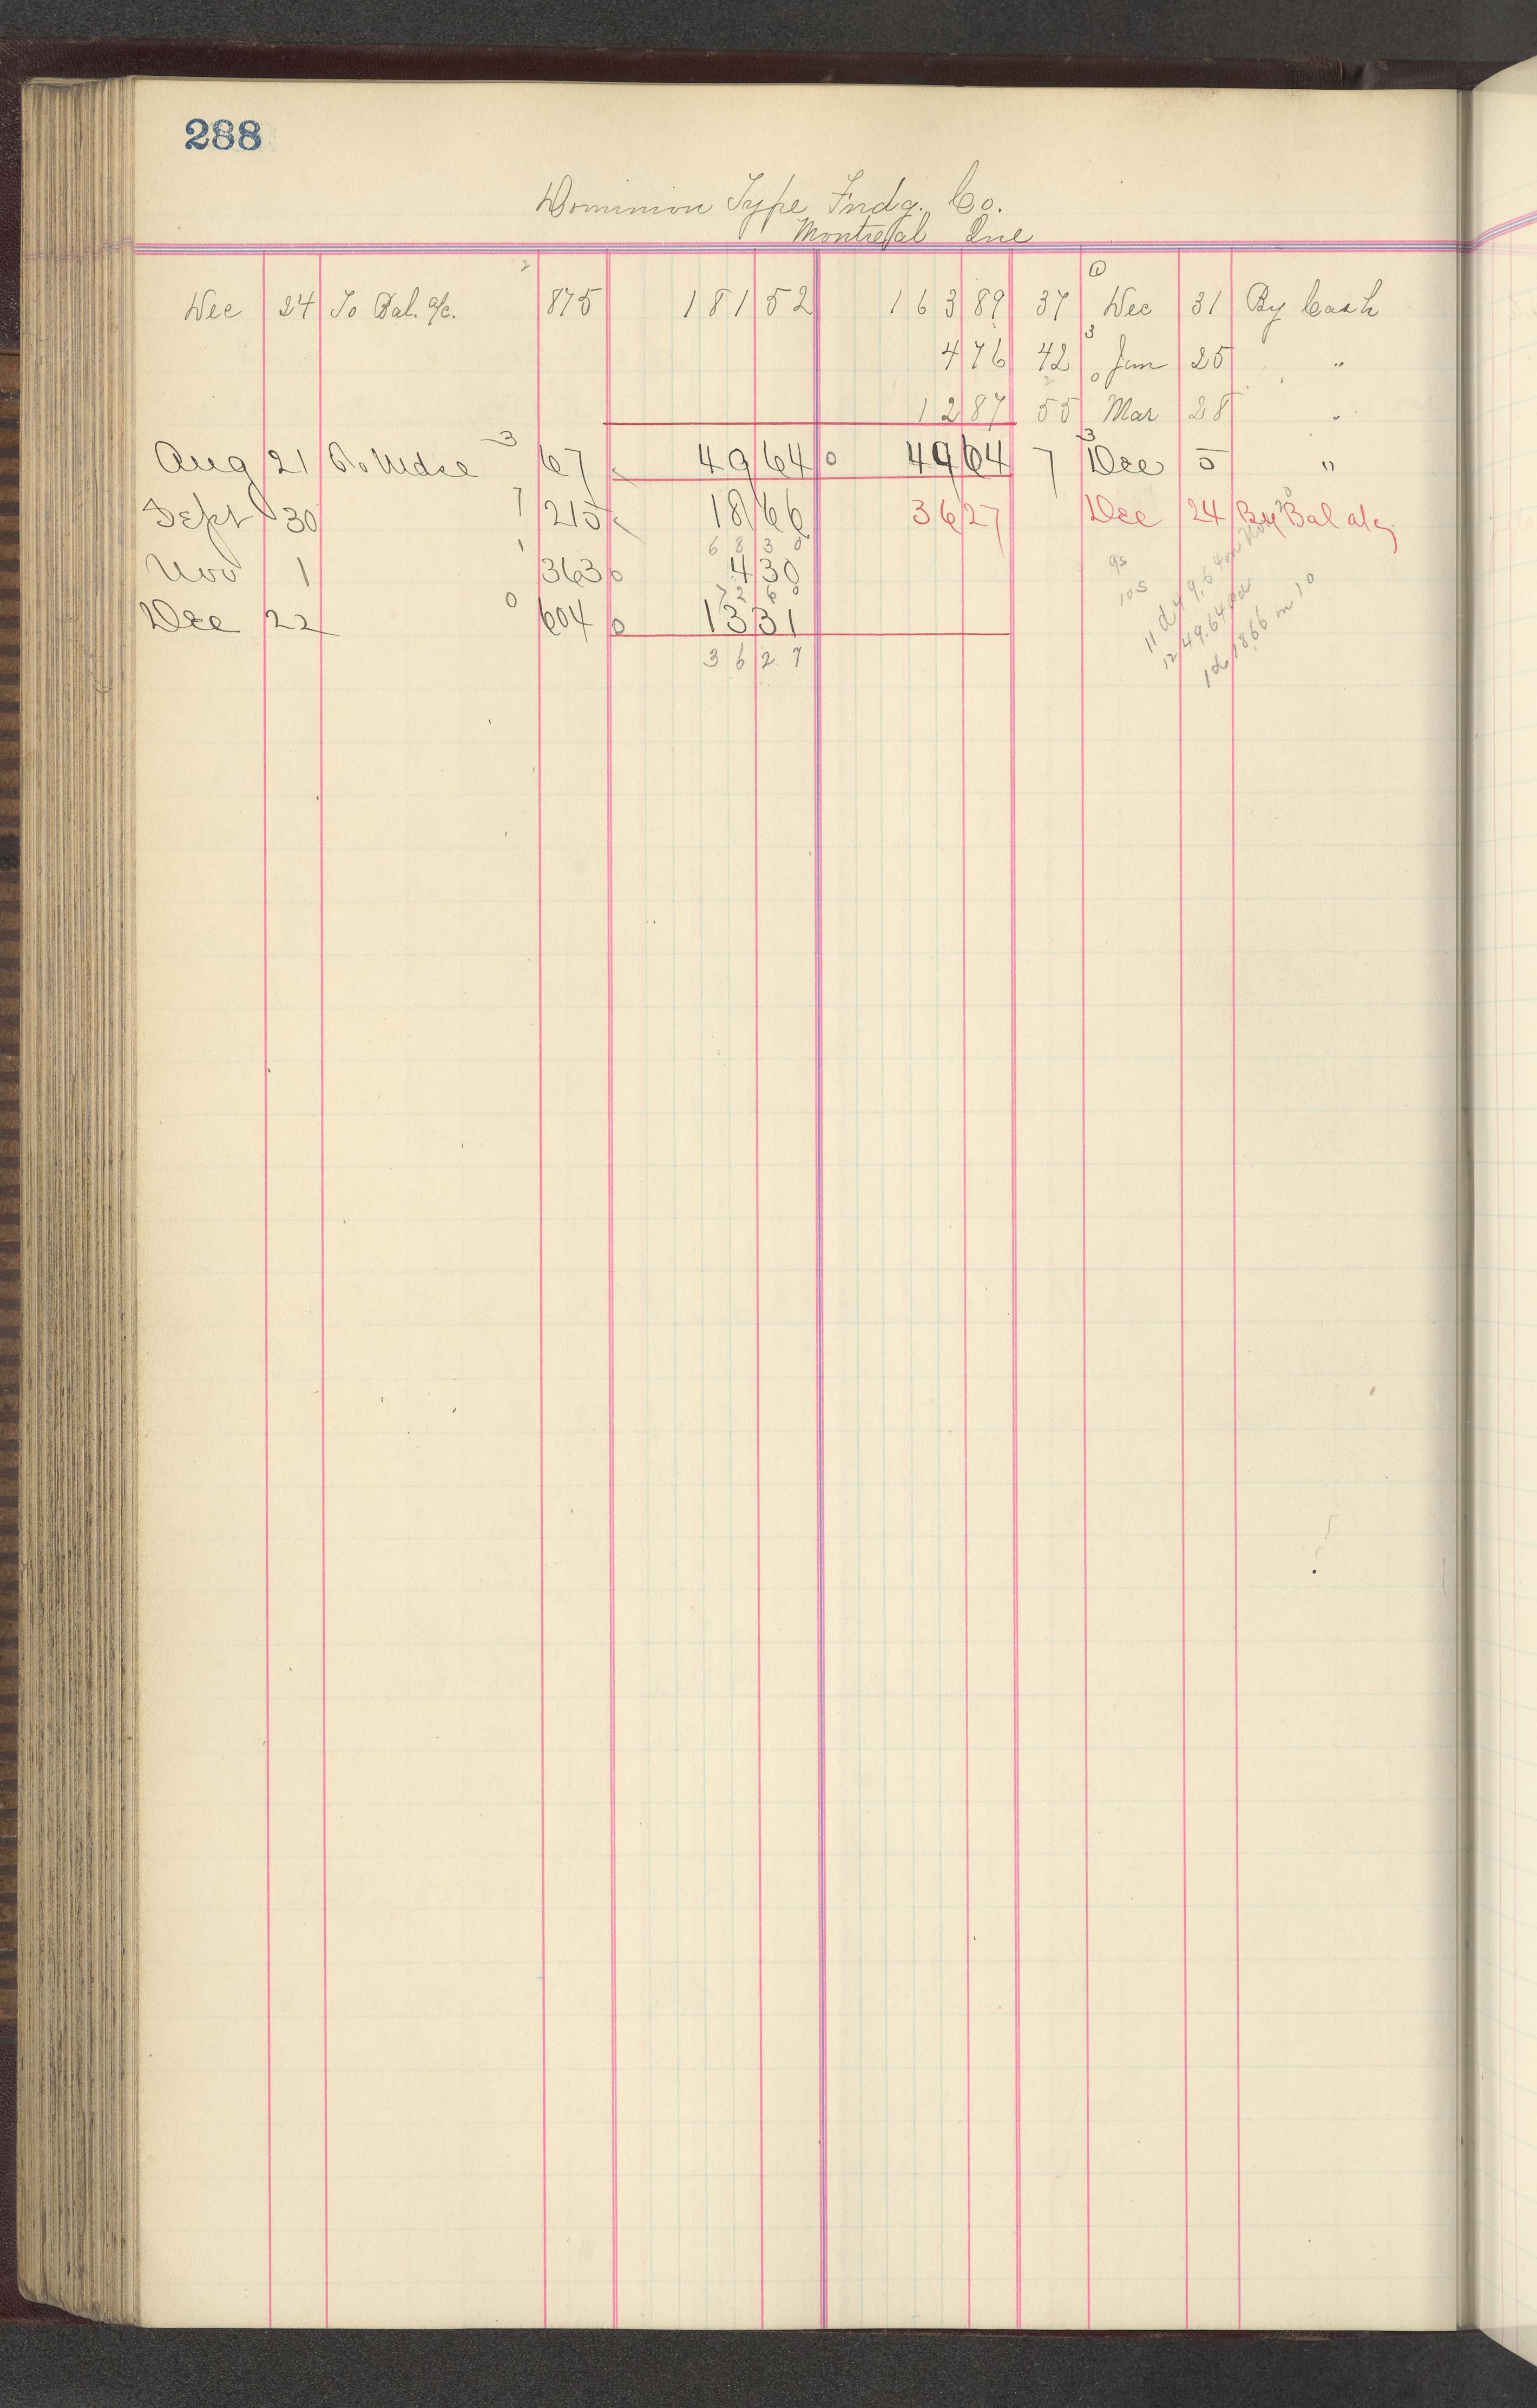 288
Dominion Type Fndg. Co.
Montreal Que
2 1
Dec 24 To Bal. a/c. 875 181 52 163 89 37 Dec 31 By Cash
3
4 76 42 0 Jan 25 "
12 87 55 Mar 28 "
3 3
Aug 21 To Mdse 67 49 64 0 49 64 7 Dec 5 "
Sept 30 7 215 18 66 36 27 Dec 24 By Bal a/c
6 8 3 0
Nov 1 1 363 0 4 30
7 2 6 0
Dec 22 0 604 0 13 31
36 27
9s
10s
11 d 49.64 on Nov 20
12 49.64 pd
1 d 18.66 on 10